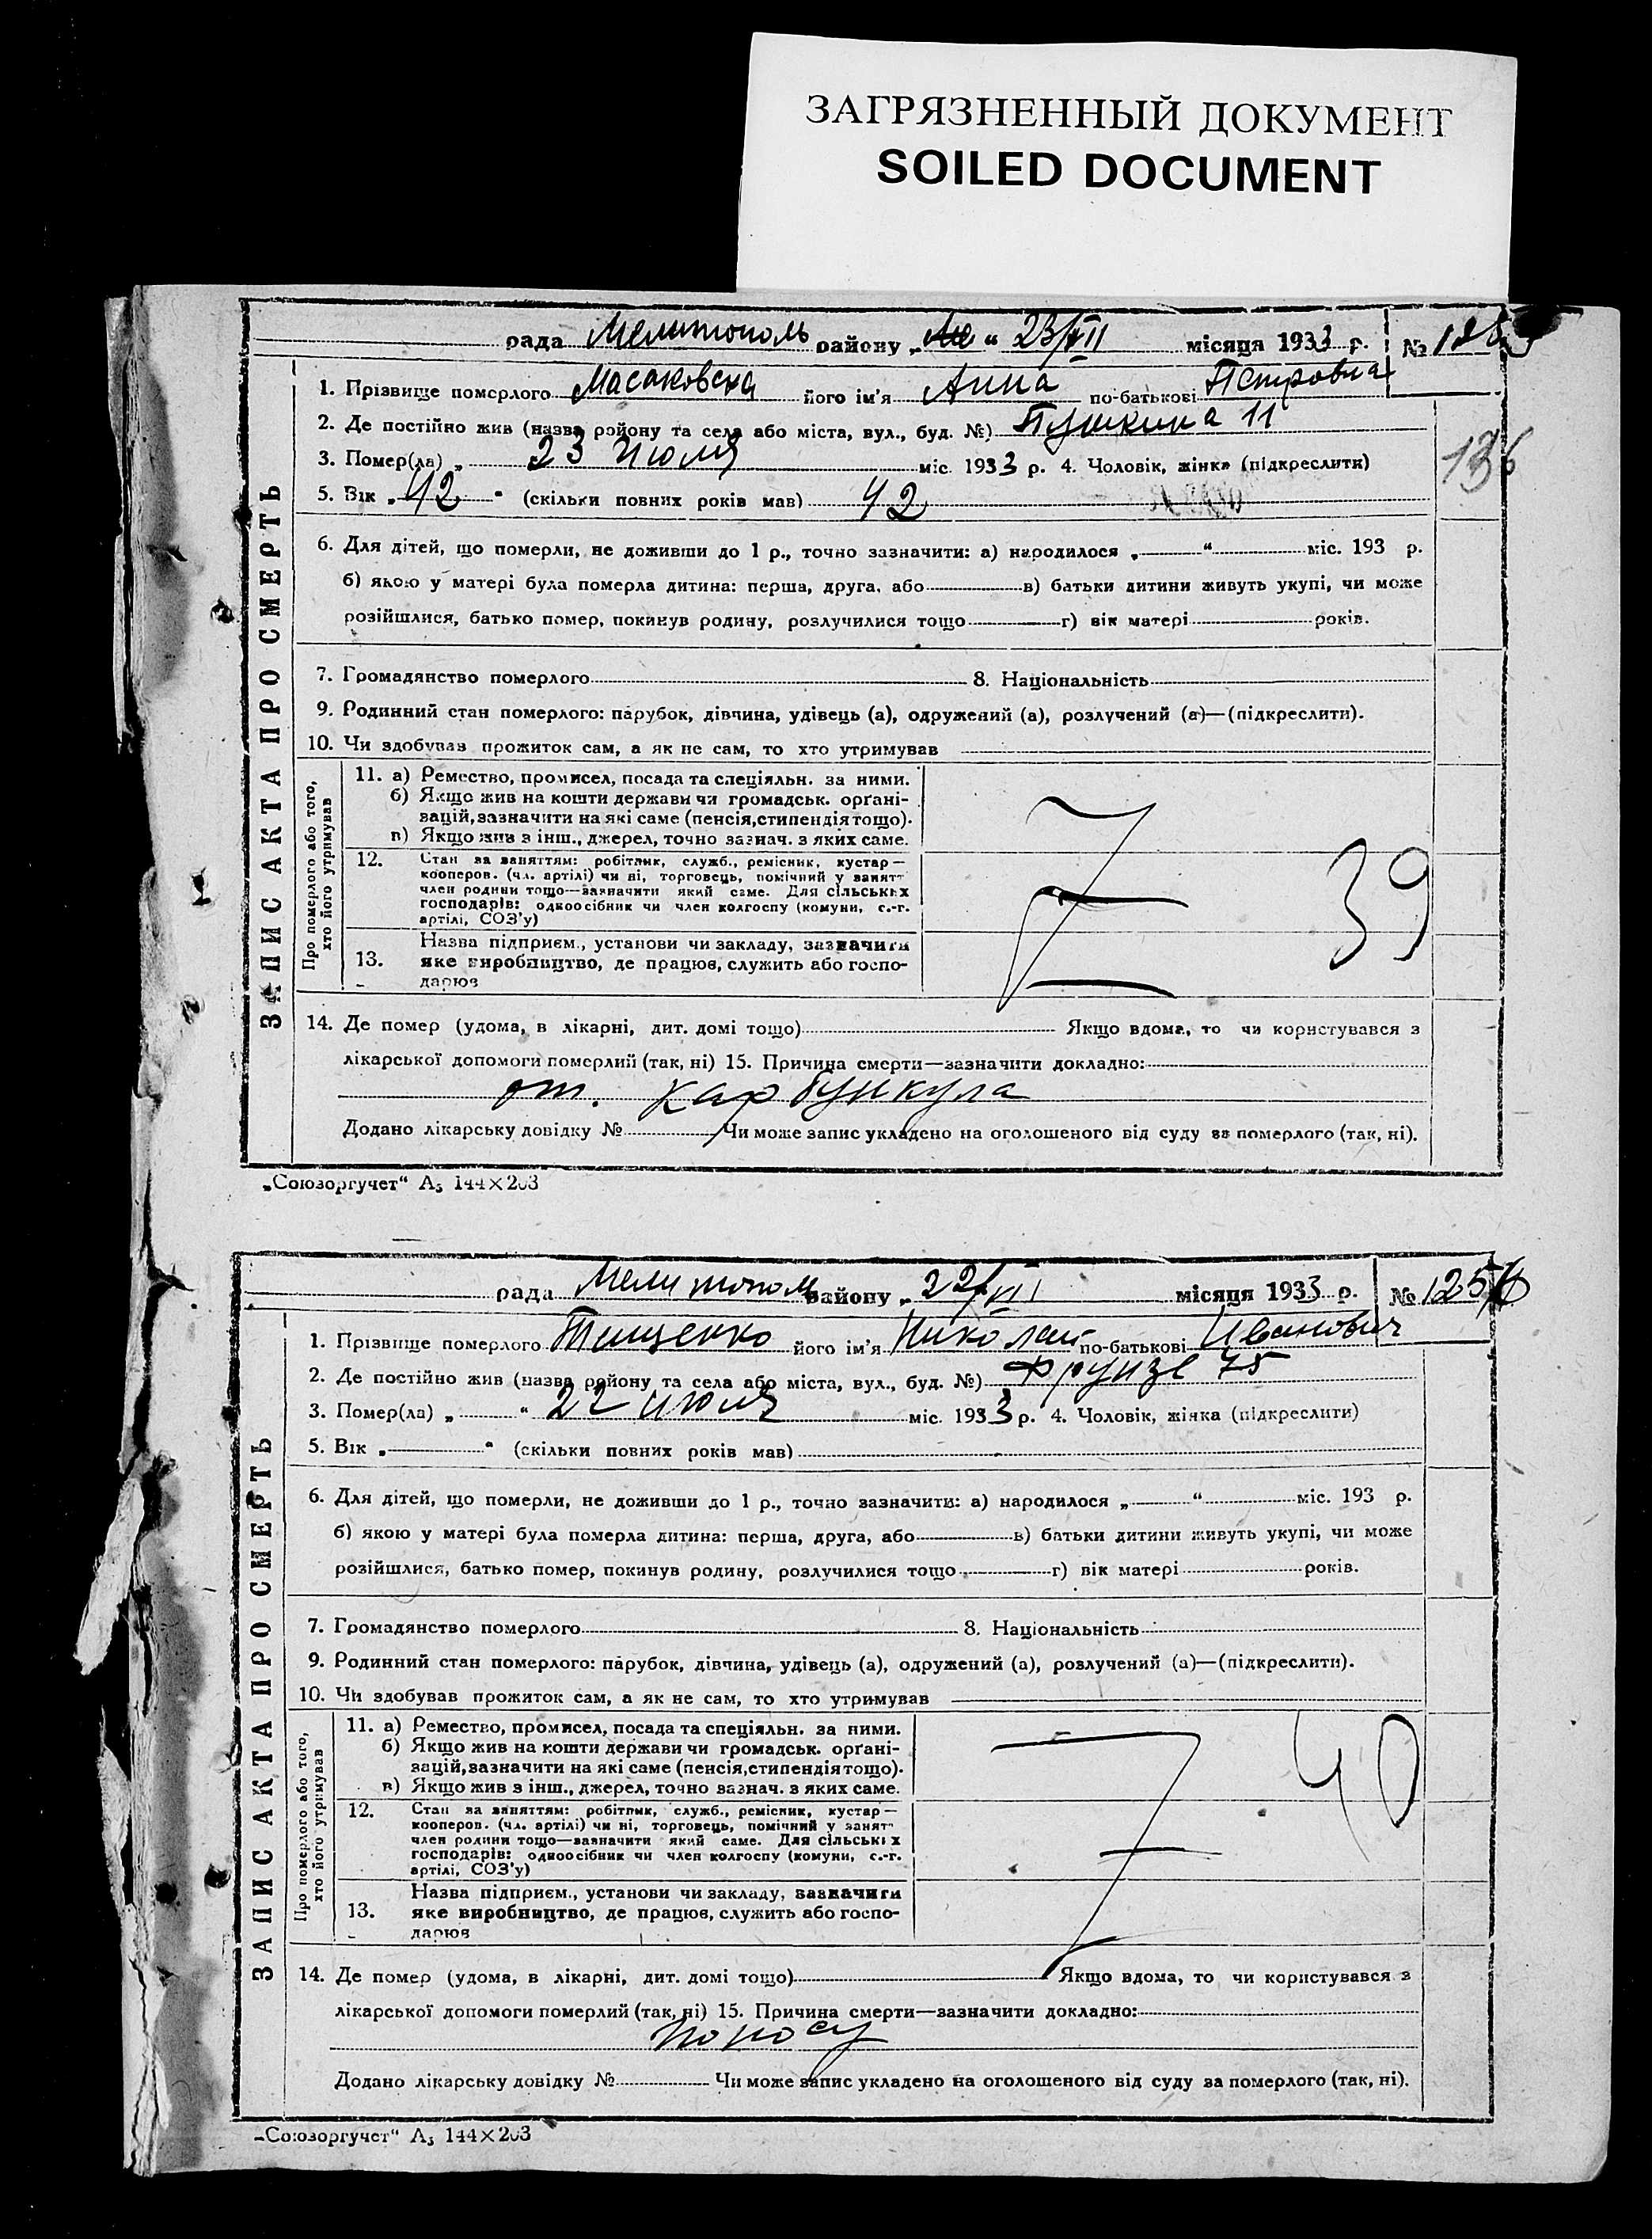 ЗАГРЯЗНЕННЫЙ ДОКУМЕНТ
SOILED DOCUMENT
рада Мелитополь району „ “ 23/VII місяця 1933 р. №
1. Прізвище померлого Масаковска його ім'я Анна по-батькові Петровна
2. Де постійно жив (назва району та села або міста, вул., буд. №) Пушкина 11
3. Помер(ла) „ 23 июля міс. 1933 р. 4. Чоловік, жінка (підкреслити)
136
5. Вік „ 42 “ (скільки повних років мав) 42
6. Для дітей, що померли, не доживши до 1 р., точно зазначити: а) народилося „ “ міс. 193 р.
б) якою у матері була померла дитина: перша, друга, або в) батьки дитини живуть укупі, чи може
розійшлися, батько помер, покинув родину, розлучилися тощо г) вік матері років.
7. Громадянство померлого 8. Національність
9. Родинний стан померлого: парубок, дівчина, удівець (а), одружений (а), розлучений (а)—(підкреслити).
10. Чи здобував прожиток сам, а як не сам, то хто утримував
ЗАПИС АКТА ПРО СМЕРТЬ
Про померлого або того,
хто його утримував
11. а) Ремество, промисел, посада та спеціяльн. за ними.
б) Якщо жив на кошти держави чи громадськ. орґані-
зацій, зазначити на які саме (пенсія, стипендія тощо).
в) Якщо жив з інш., джерел, точно зазнач. з яких саме.
12. Стан за заняттям: робітник, служб., ремісник, кустар—
кооперов. (чл. артілі) чи ні, торговець, помічний у занят
член родини тощо—зазначити який саме. Для сільських
господарів: одноосібник чи член колгоспу (комуни, с.-г.
артілі, СОЗ'у)
39
13. Назва підприєм., установи чи закладу, зазначити
яке виробництво, де працює, служить або госпо-
дарює
14. Де помер (удома, в лікарні, дит. домі тощо) Якщо вдома, то чи користувався з
лікарської допомоги померлий (так, ні) 15. Причина смерти—зазначити докладно:
от. карбункула
Додано лікарську довідку № Чи може запис укладено на оголошеного від суду за померлого (так, ні).
„Союзоргучет“ А₅ 144×203
рада Мелитополь району „ 22/VII місяця 1933 р. № 1256
1. Прізвище померлого Тищенко його ім'я Николай по-батькові Иванович
2. Де постійно жив (назва району та села або міста, вул., буд. №) Фрунзе 75
3. Помер(ла) „ “ 22 июля міс. 1933 р. 4. Чоловік, жінка (підкреслити)
5. Вік „ “ (скільки повних років мав)
6. Для дітей, що померли, не доживши до 1 р., точно зазначити: а) народилося „ “ міс. 193 р.
б) якою у матері була померла дитина: перша, друга, або в) батьки дитини живуть укупі, чи може
розійшлися, батько помер, покинув родину, розлучилися тощо г) вік матері років.
7. Громадянство померлого 8. Національність
9. Родинний стан померлого: парубок, дівчина, удівець (а), одружений (а), розлучений (а)—(підкреслити).
10. Чи здобував прожиток сам, а як не сам, то хто утримував
ЗАПИС АКТА ПРО СМЕРТЬ
Про померлого або того,
хто його утримував
11. а) Ремество, промисел, посада та спеціяльн. за ними.
б) Якщо жив на кошти держави чи громадськ. орґані-
зацій, зазначити на які саме (пенсія, стипендія тощо).
в) Якщо жив з інш., джерел, точно зазнач. з яких саме.
40
12. Стан за заняттям: робітник, служб., ремісник, кустар—
кооперов. (чл. артілі) чи ні, торговець, помічний у занят
член родини тощо—зазначити який саме. Для сільських
господарів: одноосібник чи член колгоспу (комуни, с.-г.
артілі, СОЗ'у)
13. Назва підприєм., установи чи закладу, зазначити
яке виробництво, де працює, служить або госпо-
дарює
14. Де помер (удома, в лікарні, дит. домі тощо) Якщо вдома, то чи користувався з
лікарської допомоги померлий (так, ні) 15. Причина смерти—зазначити докладно:
поносу
Додано лікарську довідку № Чи може запис укладено на оголошеного від суду за померлого (так, ні).
„Союзоргучет“ А₅ 144×203